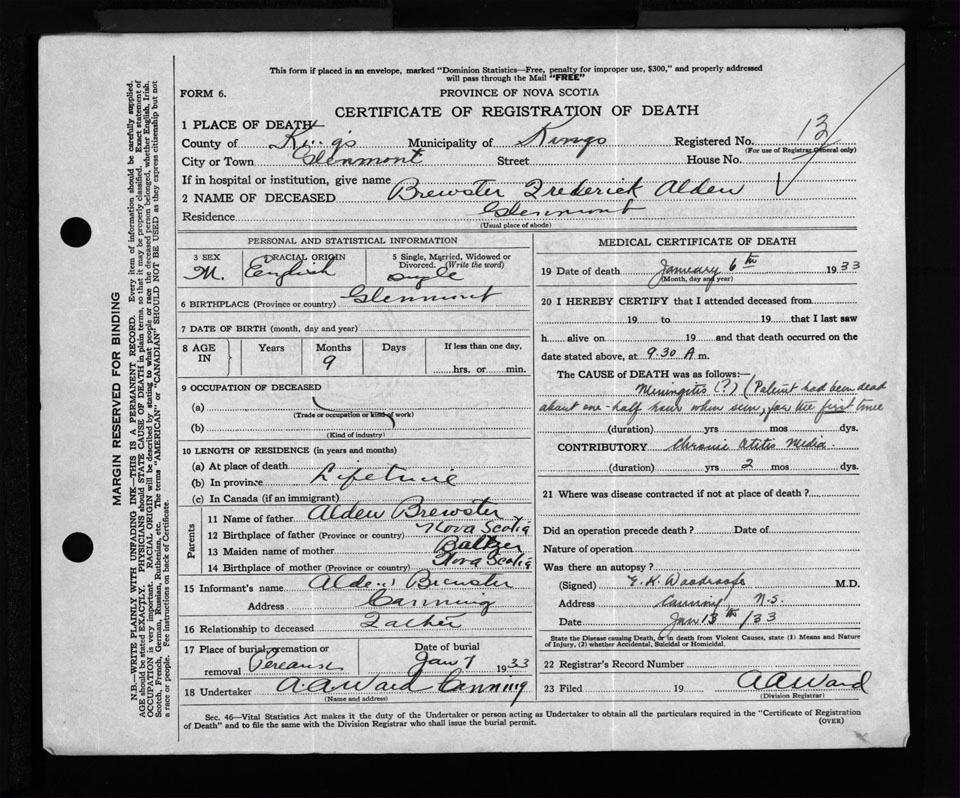 This form if placed in an envelope, marked "Dominion Statistics—Free, penalty for improper use, $300," and properly addressed
will pass through the Mail "FREE"
FORM 6.
PROVINCE OF NOVA SCOTIA
CERTIFICATE OF REGISTRATION OF DEATH
1 PLACE OF DEATH
County of King's Municipality of Kings Registered No. 13
(For use of Registrar General only)
City or Town Glenmont Street House No.
If in hospital or institution, give name
2 NAME OF DECEASED Brewster Frederick Alden
Residence Glenmont
(Usual place of abode)
PERSONAL AND STATISTICAL INFORMATION
3 SEX M.
RACIAL ORIGIN English
5 Single, Married, Widowed or Divorced. (Write the word) Single
6 BIRTHPLACE (Province or country) Glenmont
7 DATE OF BIRTH (month, day and year)
8 AGE IN Years Months 9 Days If less than one day,
hrs. or min.
9 OCCUPATION OF DECEASED
(a)
(Trade or occupation or kind of work)
(b)
(Kind of industry)
10 LENGTH OF RESIDENCE (in years and months)
(a) At place of death
(b) In province Lifetime
(c) In Canada (if an immigrant)
Parents
11 Name of father Alden Brewster
12 Birthplace of father (Province or country) Nova Scotia
13 Maiden name of mother Baltzer
14 Birthplace of mother (Province or country) Nova Scotia
15 Informant's name Alden Brewster
Address Canning
16 Relationship to deceased Father
17 Place of burial, cremation or removal Pereaux
Date of burial Jan 7 1933
18 Undertaker A.A. Ward Canning
(Name and address)
MEDICAL CERTIFICATE OF DEATH
19 Date of death January 6th 1933
(Month, day and year)
20 I HEREBY CERTIFY that I attended deceased from
19 to 19 that I last saw
h alive on 19 and that death occurred on the
date stated above, at 9.30 A m.
The CAUSE of DEATH was as follows:—
Meningitis (?) (Patient had been dead
about one-half hour when seen, for the first time
(duration) yrs mos dys.
CONTRIBUTORY Chronic Otitis Media
(duration) yrs 2 mos dys.
21 Where was disease contracted if not at place of death?
Did an operation precede death? Date of
Nature of operation
Was there an autopsy?
(Signed) E. K. Woodroofe M.D.
Address Canning N.S.
Date Jan 13th /33
State the Disease causing Death, or in death from Violent Causes, state (1) Means and Nature
of Injury, (2) whether Accidental, Suicidal or Homicidal.
22 Registrar's Record Number
23 Filed 19 AA Ward
(Division Registrar)
Sec. 46—Vital Statistics Act makes it the duty of the Undertaker or person acting as Undertaker to obtain all the particulars required in the "Certificate of Registration
of Death" and to file the same with the Division Registrar who shall issue the burial permit.
(OVER)
MARGIN RESERVED FOR BINDING
N.B.—WRITE PLAINLY WITH UNFADING INK—THIS IS A PERMANENT RECORD. Every item of information should be carefully supplied.
AGE should be stated EXACTLY. PHYSICIANS should STATE CAUSE OF DEATH in plain terms, so that it may be properly classified. Exact statement of
OCCUPATION is very important. RACIAL ORIGIN will be described by stating to what people or race the deceased person belonged, whether English, Irish,
Scotch, French, German, Russian, Ruthenian, etc. The terms "AMERICAN" or "CANADIAN" SHOULD NOT BE USED as they express citizenship but not
a race or people. See instructions on back of Certificate.